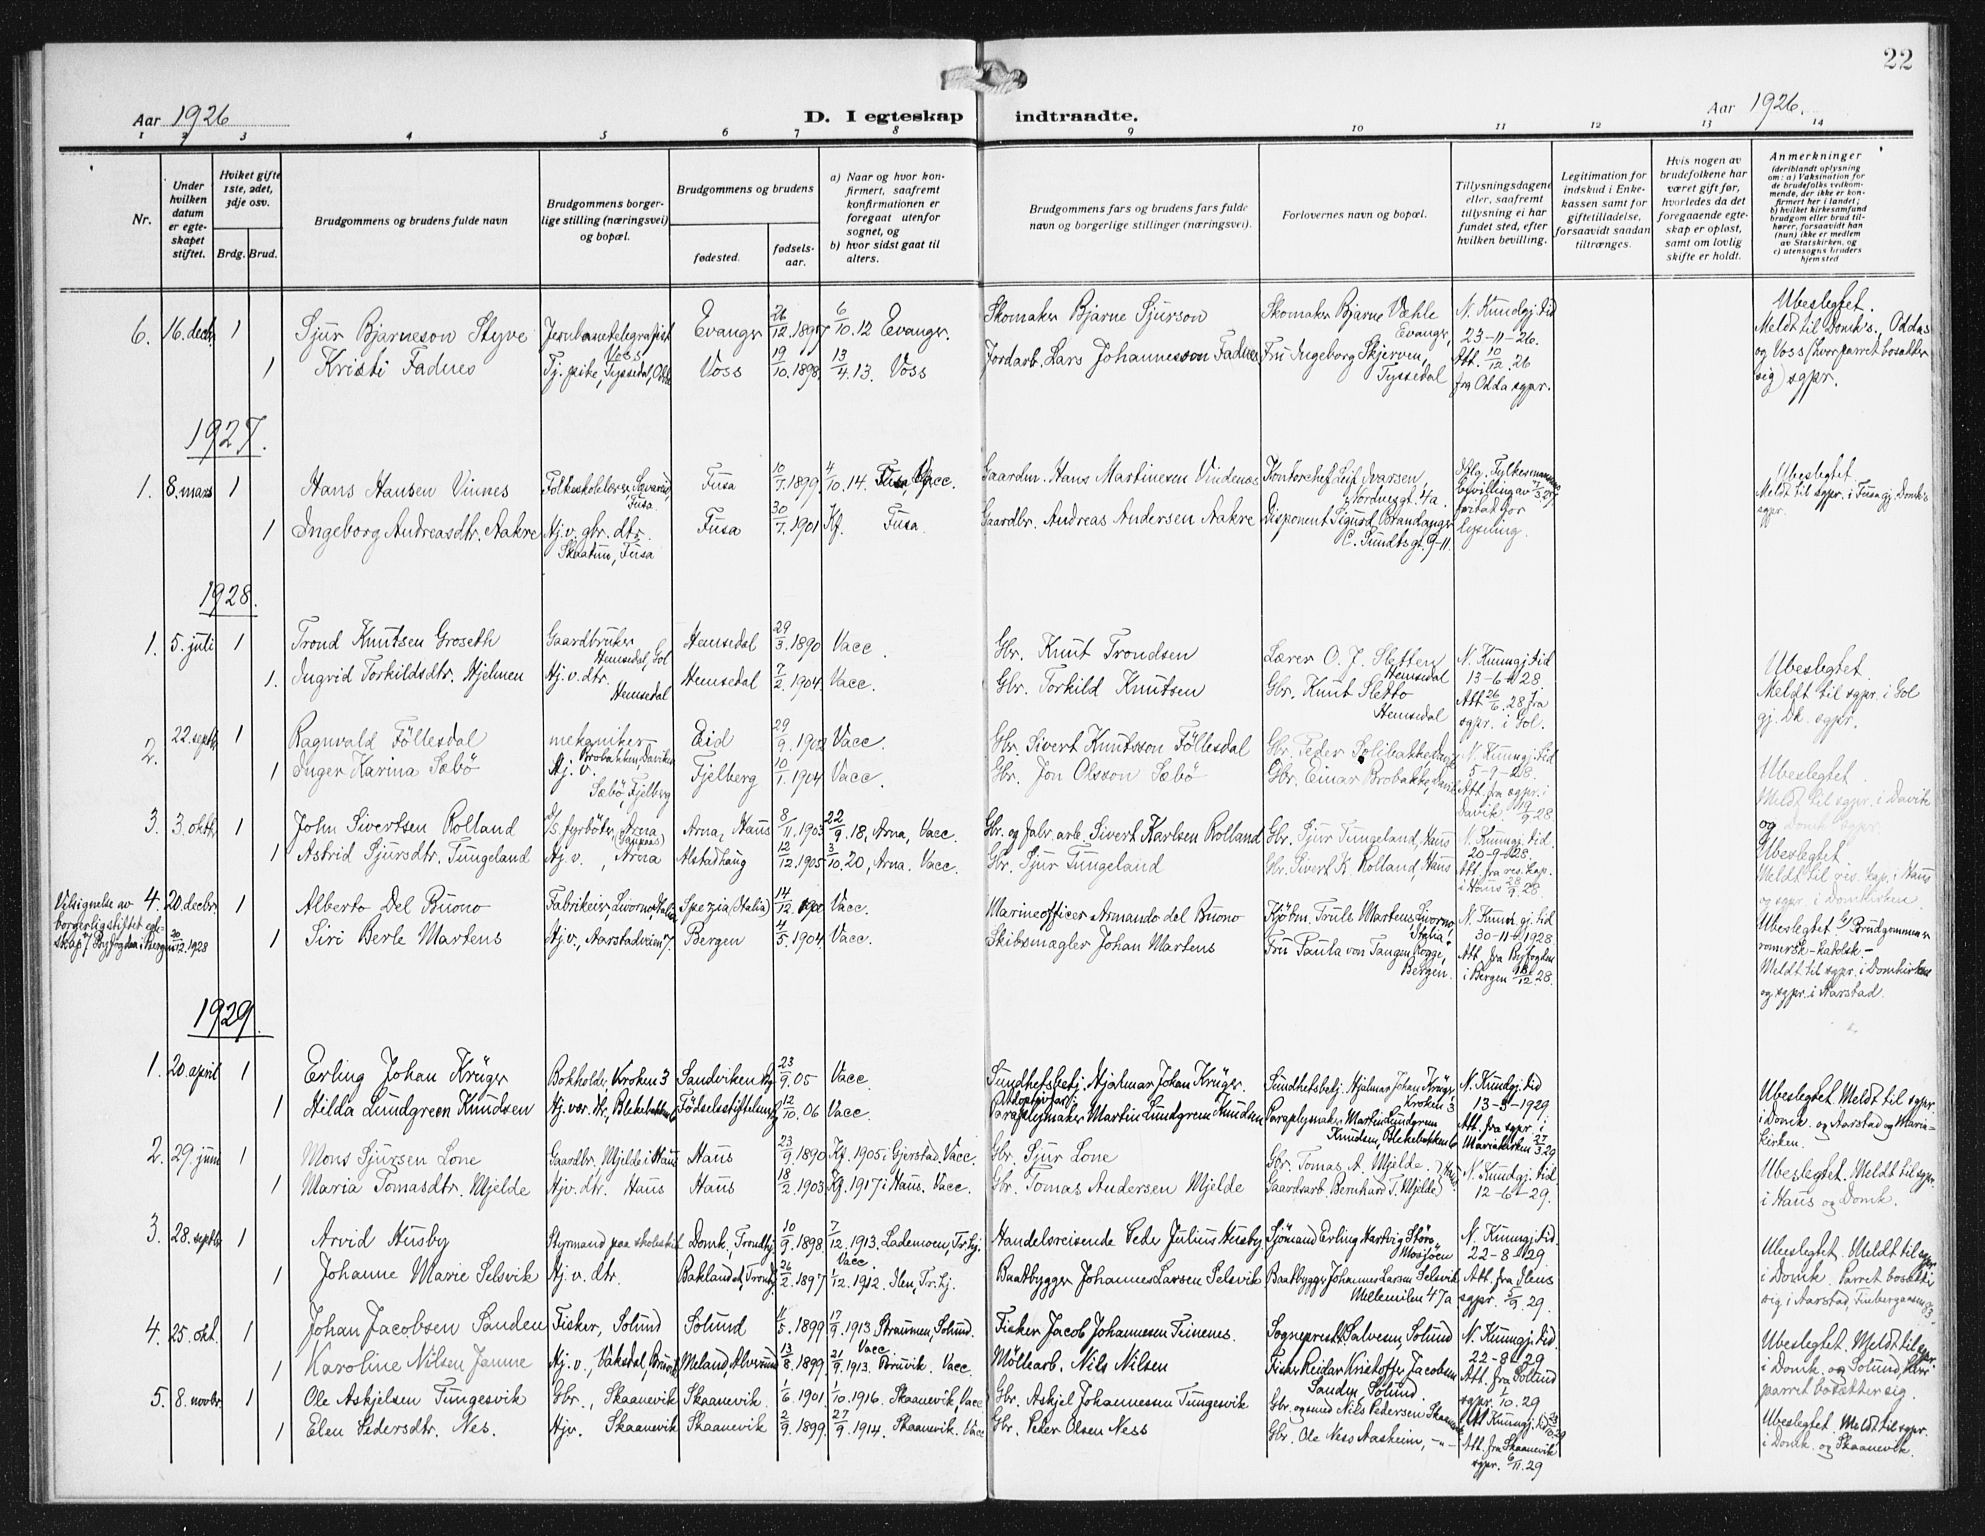 22
Aar 1926
D. I egteskap indtraadte.
Aar 1926.
1 2 3 4 5 6 7 8 9 10 11 12 13 14
Nr.
Under hvilken datum er egteskapet stiftet.
Hviket gifte 1ste, 2det, 3dje osv.
Brdg. Brud.
Brudgommens og brudens fulde navn
Brudgommens borgerlige stilling (næringsvei) og bopæl.
Brudgommens og brudens
fødested.
fødselsaar.
a) Naar og hvor konfirmert, saafremt konfirmationen er foregaat utenfor sognet, og
b) hvor sidst gaat til alters.
Brudgommens fars og brudens fars fulde navn og borgerlige stillinger (næringsvei).
Forlovernes navn og bopæl.
Tillysningsdagene eller, saafremt tillysning ei har fundet sted, efter hvilken bevilling.
Legitimation for indskud i Enkekassen samt for giftetilladelse, forsaavidt saadan tiltrænges.
Hvis nogen av brudefolkene har været gift før, hvorledes da det foregaaende egteskap er opløst, samt om lovlig skifte er holdt.
Anmerkninger
(deriblandt oplysning om: a) Vaksination for de brudefolks vedkommende, der ikke er konfirmert her i landet; b) hvilket kirkesamfund brudgom eller brud tilhører, forsaavidt han (hun) ikke er medlem av Statskirken, og c) utensogns bruders hjemsted
6. 16. decbr. 1 Sjur Bjarneson Styve Jernbanetelegrafist Voss Evanger 26/12.1897 6/10.12 Evanger. Skomaker Bjarne Sjurson Skomaker Bjarne Væhle Evanger, N. Kundgj. tid 23-11-26. Ubeslegtet.
1 Kristi Fadnes Tj. pike, Tyssedal, Odda Voss 19/10.1898. 13/4.13. Voss Jordarb. Lars Johannesson Fadnes Fru Ingeborg Skjerven, Tyssedal Att. 10/12.26 fra Odda sgpr. Meldt til Domk's., Oddas og Voss (hvor parret bosætter sig) sgpr.
1927.
1. 8. mars 1 Hans Hansen Vinnes Folkeskolelærer, Fusa. Fusa 10/7.1899. 4/10.14. Fusa, Vacc. Gaardm. Hans Martinesen Vindenes Kontorchef Leif Ivarsen Nordnesgt. 4/a. Ubeslegtet
1 Ingeborg Andreasdtr. Aakre Hj. v. gbr. dtr. Skaatun, Fusa Fusa 30/7.1901 Kf. Fusa. Gaardbr. Andreas Andersen Aakre Disponent Sigurd Brandanger C. Sundtsgt. 9-11. lysning. Meldt til sgpr. i Fusa gj. Domk's sgpr.
1928.
1. 5. juli 1 Trond Knutsen Groseth Gaardbruker Hemsedal, Gol Hemsedal 29/3.1890 Vacc. Gbr. Knut Trondsen Lærer O. J. Sletten Hemsedal N. Kunngj. tid 13-6-28 Ubeslegtet.
1. Ingrid Torkildsdtr. Hjelmen Hj. v. dtr. Hemsedal Hemsedal 7/2.1904. Vacc. Gbr. Torkild Knutsen Gbr. Knut Sletto Hemsedal Att 26/6.28 fra sgpr. i Gol. Meldt til sgpr. i Gol gj. Dk. sgpr.
2. 22. septbr. 1 Ragnvald Föllesdal mekaniker Brobakken, Daviken Eid 29/9.1902 Vacc. Gbr. Sivert Knutsson Föllesdal N. Kunngj. tid 5-9-28. Ubeslegtet.
1 Inger Karina Sæbö Hj. v. Sæbö, Fjelberg Fjelberg 10/1.1904 Vacc. Gbr. Jon Olsson Sæbö Gbr. Einar Brobakke, Att. fra sgpr. i Davik. 19/9 28 Meldt til sgpr. i Davik og Domk. sgpr.
3. 3. oktbr. 1 John Sivertsen Rolland d/s. fyrböter, Arna Arna, Haus 8/11.1903 22/9.18, Arna, Vacc. Gbr. og fabr. arb. Sivert Karlsen Rolland Gbr. Sjur Tungeland, Haus N. Kunngj. tid. 20-9-28. Ubeslegtet
1 Astrid Sjursdtr. Tungeland Hj. v., Arna Alstadhaug 12/12.1905 3/10.20, Arna. Vacc. Gbr. Sjur Tungeland Gbr. Sivert K. Rolland, Haus Att. fra res. kap. i Haus 28/9.28. Meldt til res. kap. i Haus og sgpr. i Domkirken.
Velsignelse av borgerlig stiftet egteskap v/ Byfogden i Bergen 20/12.1928
4. 20. decbr. 1 Alberto Del Buono Fabrikeier, Livorno, Italia Spezia (Italia) 14/12.1900 Vacc. Marineofficer Armando del Buono Kjöbm. Truls Martens, Livorno, Italia N. Kunngj. tid 30-11-1928. Ubeslegtet. Brudgommen romersk-katolsk.-
1 Siri Berle Martens Hj. v., Aarstadveien 7. Bergen 4/5.1904 Vacc. Skibsmægler Johan Martens Fru Paula von Tangen Rogge, Bergen. Att. fra Byfogden i Bergen 18/12 28. Meldt til sgpr. i Domkirken og sgpr. i Aarstad.
1929.
1. 20. april 1 Erling Johan Krüger Bokholder, Kroken 3 Sandviken 23/9.05 Vacc. Sundhetsbetj. Hjalmar Johan Krüger. Sundhetsbetj. Hjalmar Johan Krüger, Kroken 3 N. Kundgj. tid 13-3-1929. Ubeslegtet. Meldt til sgpr.
1 Hilda Lundgreen Knudsen Hj. vær. dtr., Blekebakken 6 Födselsstiftelsen 12/10.06 Vacc. Adoptivfar: Paraplymaker Martin Lundgreen Knudsen Paraplymaker Martin Lundgreen Knudsen, Blekebakken 6 Att. fra sgpr. i Mariakirken 27/3.29 i Domk. og Aarstad og Mariakirken.
2. 29. juni 1 Mons Sjursen Lone Gaardbr., Mjelde i Haus Haus 23/9.1890 Kf. 1905 i Gjerstad. Vacc. Gbr. Sjur Lone Gbr. Tomas A. Mjelde. N. Kundgj. tid. 12-6-29. Ubeslegtet. Meldt til sgpr.
1 Maria Tomasdtr. Mjelde Hjv. dtr. Haus Haus 18/2.1903 Kf. 1917 i Haus. Vacc. Gbr. Tomas Andersen Mjelde Gaardsarb. Bernhard T. Mjelde i Haus og Domk.
3. 28. septbr. 1 Arvid Husby Styrmand paa skoleskib Domk. Trondhj. 10/9.1898. 7/12.1913. Lademoen, Tr.hj. Vacc. Handelsreisende Peder Julius Husby Sjömand Erling Hartvig Störe, Mosjöen N. Kunngj. tid. 22-8-29 Ubeslegtet. Meldt til sgpr.
1 Johanne Marie Selsvik Hj. v. dtr. Baklandet, Trondhj. 26/2.1897 1/12.1912. Ilen, Tr.hj. Baatbygger Johannes Larsen Selsvik Baatbygger Johannes Larsen Selsvik Mellemilen 47a Att. fra Ilens sgpr. 5/9.29. i Domk. Parret bosætter sig i Aarstad,
4. 25. okt. 1 Johan Jacobsen Sanden Fisker, Solund Solund 11/5.1899 17/9.1913 Straumen, Solund. Vacc. Fisker Jacob Johannesen Steinenes. Sogneprest Salvesen, Solund N. Kunngj. tid. 22-8-29 Ubeslegtet. Meldt til sgpr.
1 Karoline Nilsen Jamne Hj. v., Vaksdal, Bruvik Meland, Alversund 13/8.1899 21/9.1913. Bruvik. Vacc. Möllearb. Nils Nilsen Fisker Reidar Kristoffer Jacobsen Sanden, Solund Att. fra Solund sgpr. 1/10.29 i Domk. og Solund, hvor parret bosætter sig.
5. 8. novbr. 1 Ole Askjelsen Tungesvik Gbr., Skaanevik Skaanevik. 1/6.1901 1/10.1916. Skaanevik, Vacc. Gbr. Askjel Johannessen Tungesvik Gbr. og smed Nils Pedersen Skaanevik N. Kunngj. tid 23/10.29 Ubeslegtet. Meldt til sgpr.
1 Elen Pedersdtr. Nes. Hjv. Skaanevik Skaanevik 2/9.1899 27/9.1914. Skaanevik. Vacc Gbr. Peder Olsen Ness Gbr. Ole Ness Aasheim, -"- Att. fra Skaanevik sgpr. 6/11.29 i Domk. og Skaanevik.